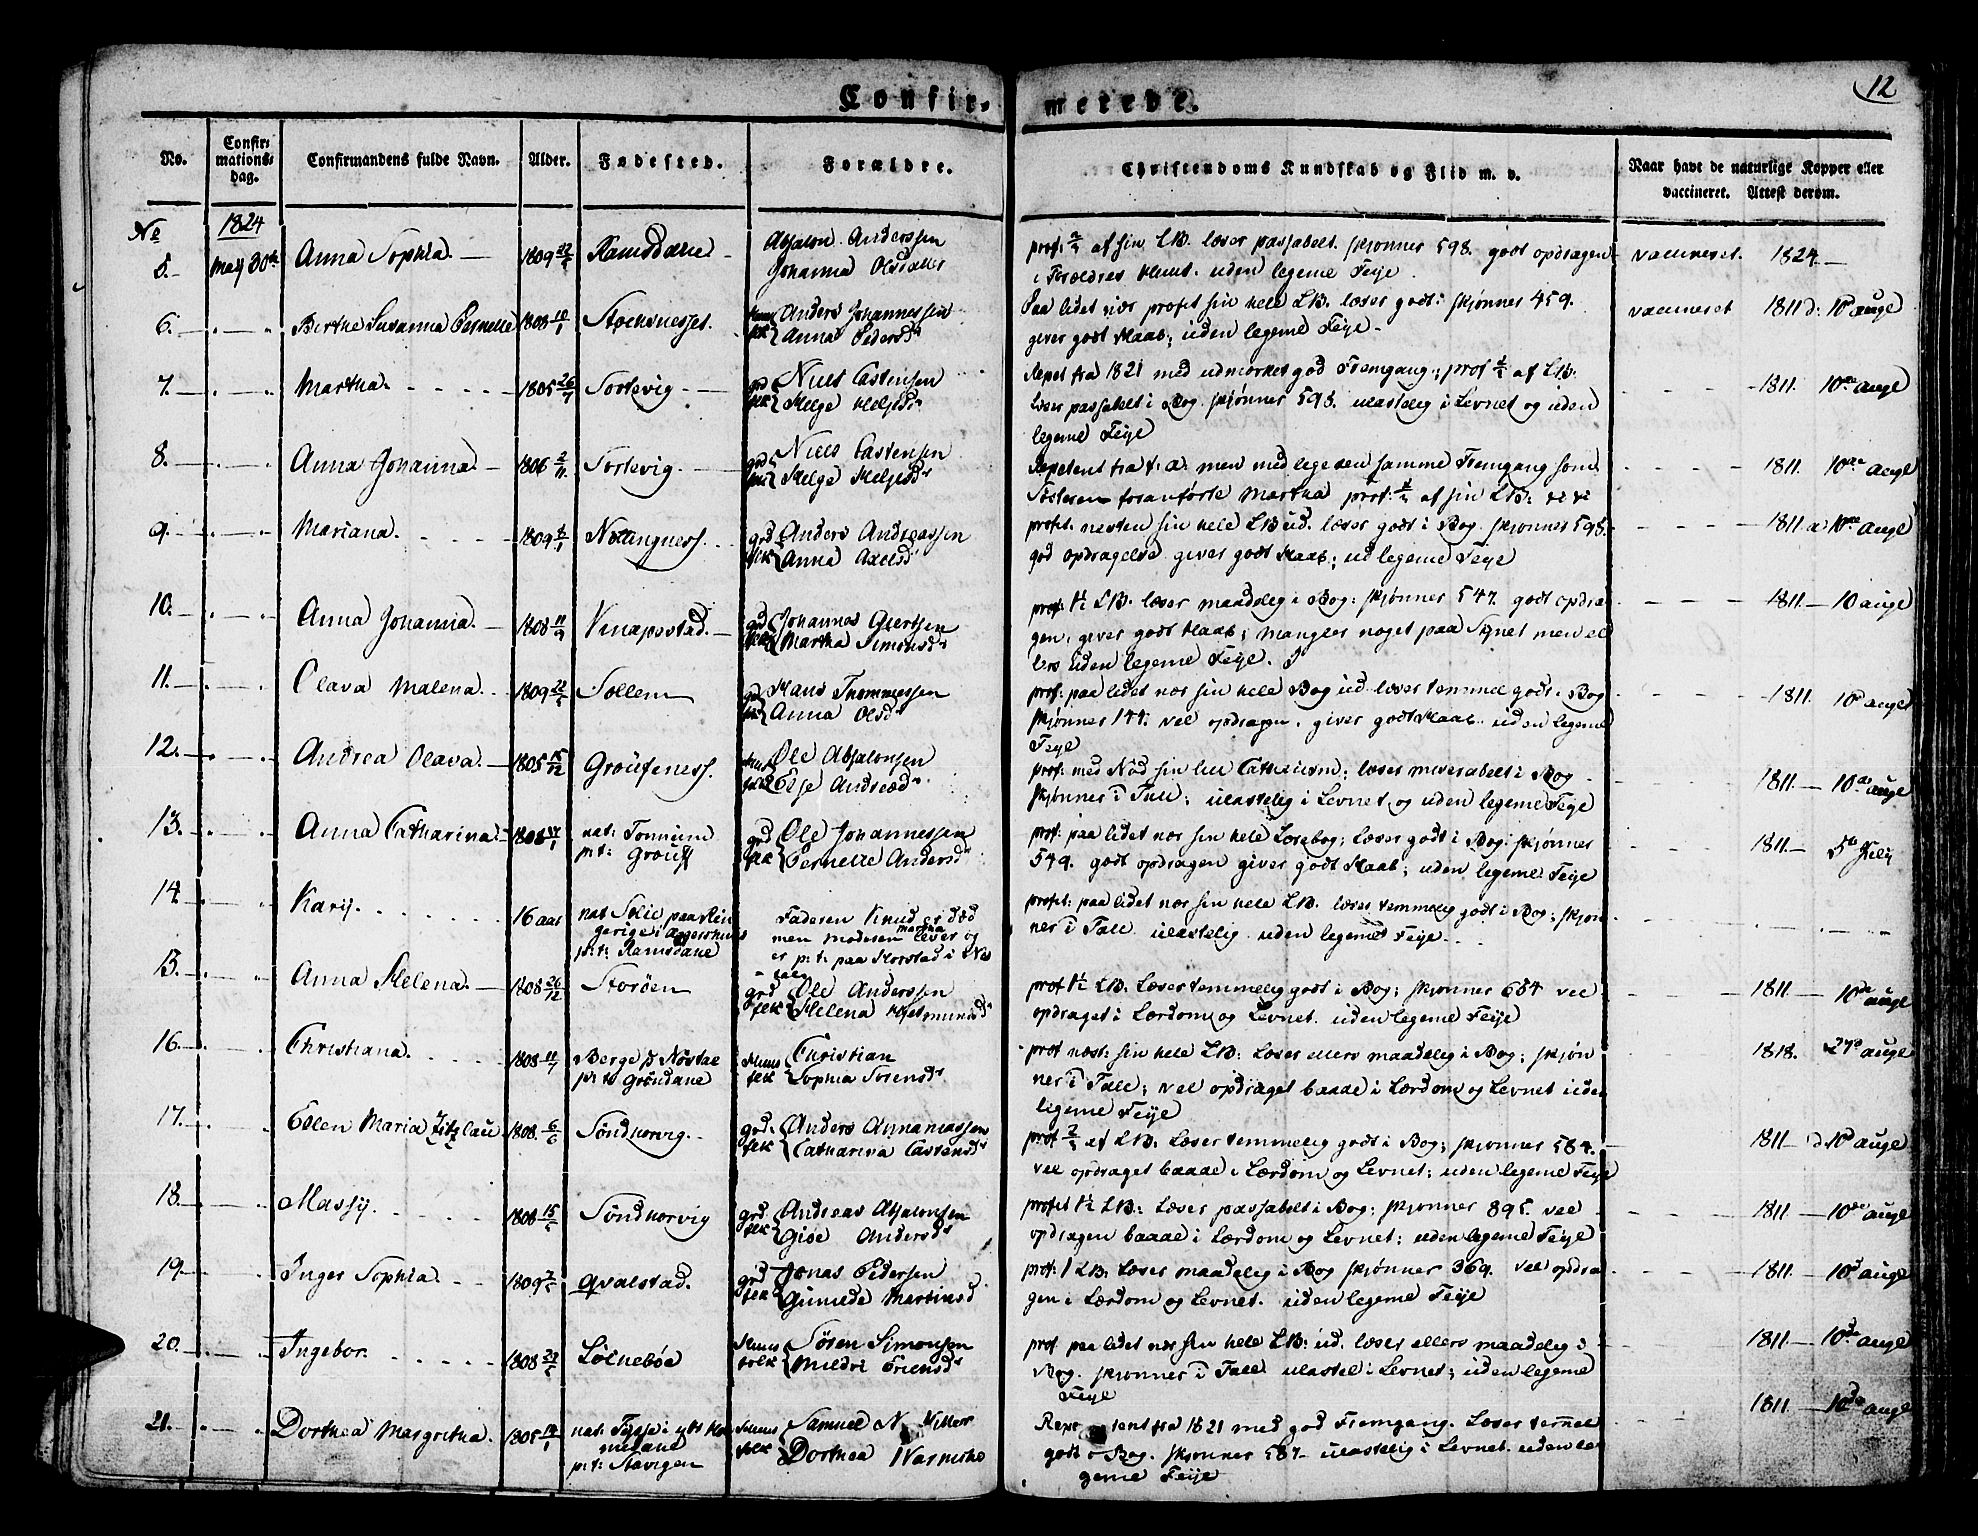 12
Confir- merede.
No.
Confir-
mations-
dag.
Confirmandens fulde Navn.
Alder.
Fødested.
Forældre.
Christendoms Kundskab og Flid m. v.
Naar havt de naturlige Kopper eller
vaccineret. Attest derom.
No 1824
5. May 30te Anna Sophia. 1809 Ramsdane Absalon Anderssen
Johanna Olsdatter
prof: 2/3 af sin LB. læser passabelt. skjønner 598. godt opdragen
i Forældres Huus. uden legeme Feije. vaccineret. 1824
6. Birthe Susanna Pernelle 1808 Stochsnesset. Huus Anders Johannessen
folk Anna Pedersdr
Paa lidet nær profit sin hele LB. læser godt: skjønner 459.
giver godt Haab; uden legeme Feije. vaccineret 1811 d: 10d augl
7. Martha. 1805 26/7 Sortevig grd Niels Castensen
folk Helge Heljesdr
Repet fra 1821 med udmærket god Fremgang; prof 1/2 af LB.
læser passabelt i Bog. skjønner 598. ulastelig i Levnet og uden
legeme Feije 1811. 10de augl
8. Anna Johanna. 1806 2/11 Sortevig. grd Niels Castensen
folk Helge Heljesdr
Repetent fra f. a. men med legesen samme Fremgang som
Søsteren foranførte Martha prof: 1/2 af sin LB: 1811. 10de augl
9. Mariana. 1809 6/1 Notangness. grd Anders Andreassen
folk Anna Axelsdr
profit. nesten sin hele LB ud. læser godt i Bog. skjønner 598.
god opdragelse giver godt Haab; ud legeme Feije 1811. d 10de augl
10. Anna Johanna. 1808 11/9 Vinapostad. grd Johannes Giertsen
folk Martha Simonsdr
prof: 1 1/2 LB: læser maadelig i Bog; skjønner 547. godt opdra
gen, giver godt Haab; mangler noget paa Synet men el
lers uden legeme Feije. 1811. 10 augl
11. Olava Malena. 1809 Sollem grd Hans Thommessen
folk Anna Olsdr
prof: paa lidet nær sin hele Bog ud læser temmel godt i Bog
skjønner 144: vel opdragen. giver godt Haab. uden legeme
Feije 1811. 10d augl
12. Andrea Olava. 1805 15/12 Grøufeness. Huus Ole Absalonsen
folk Else Andreædr
prof: med Nød sin lille Catheicism; læser miserabelt i Bog
skjønner i Tall; ulastelig i Levnet og uden legeme Feije 1811. 10de augl
13. Anna Catharina 1808 nat: Tonnum
p: t: Grøuff grd Ole Johannessen
folk Pernelle Andersdr
prof: paa lidet nær sin hele Lærebog; læser godt i Bog: skjønner
549. godt opdragen giver godt Haab; uden legeme Feije 1811. 5d Julij
14. Karij. 16 aar nat Solie paa Rin
gerige i Aggershuus
p: t: Ramsdane Faderen Knud er død
men moderen Martha lever og
er p: t: paa Horstad i Nes
profit: paa lidet nær sin hele LB. læser temmelig godt i Bog; skjøn
ner i Tall. ulastelig. uden legeme Feije.
15. Anna Helena. 1808 26/12 Storøen grd Ole Anderssen
folk Helena
prof 1 1/2 LB. Læser temmelig godt i Bog; skjønner 684 vel
opdraget i Lærdom og Levnet. uden legeme Feije 1811. 10de augl
16. Christiana. 1808 11/7 Berge p Nøstal
p: t: Grøndane Huus Christian
folk Sophia Sørensdr
prof næst: sin hele LB: Læser ellers maadelig i Bog; skjøn
ner i Tall; vel opdraget baade i Lærdom og Levnet uden
legeme Feije 1818. 27d augl
17. Ellen Maria Zitzlau 1808 6/6 Søndhorvig. grd Anders Annaniassen
folk Catharina Castensdr
prof 2/3 af LB: Læser temmelig godt i Bog; skjønner 584.
vel opdraget baade i Lærdom og Levnet; uden legeme Feije 1811 d 10d augl
18. Massij. 1808 Søndhorvig grd Andreas Absalonsen
folk Gjøe Andersdr
profit 1 1/2 LB: Læser passabelt i Bog; skjønner 895. vel
opdragen baade i Lærdom og Levnet; uden legeme Feije 1811. 10de augl
19. Inger Sophia. 1809 Qvalstad. grd Jonas Pedersen
folk Gunilda Martinsd
prof: 1 LB: Læser maadelig i Bog skjønner 369. vel opdra
gen i Lærdom og Levnet. uden legeme Feije 1811. 10d augl
20. Ingebor. 1808 Lølnebøe Huus Søren Simonsen
folk Mildri Friensdr
prof. paa lidet nær sin hele LB: ud. læser ellers maadelig i
Bog. skjønner i Tall ulastel i Levnet; uden legeme
Feije 1811. 10de augl
21. Dorthea Margretha. 1805 nat: Fosse i
p: t: Stavigen Huus Samuel N
folk Dorthea
Repetent fra 1821 med god Fremgang. Læser temmel
godt i Bog. skjønner 587 ulastelig i Levnet. uden le
geme Feije 1811 10de augl